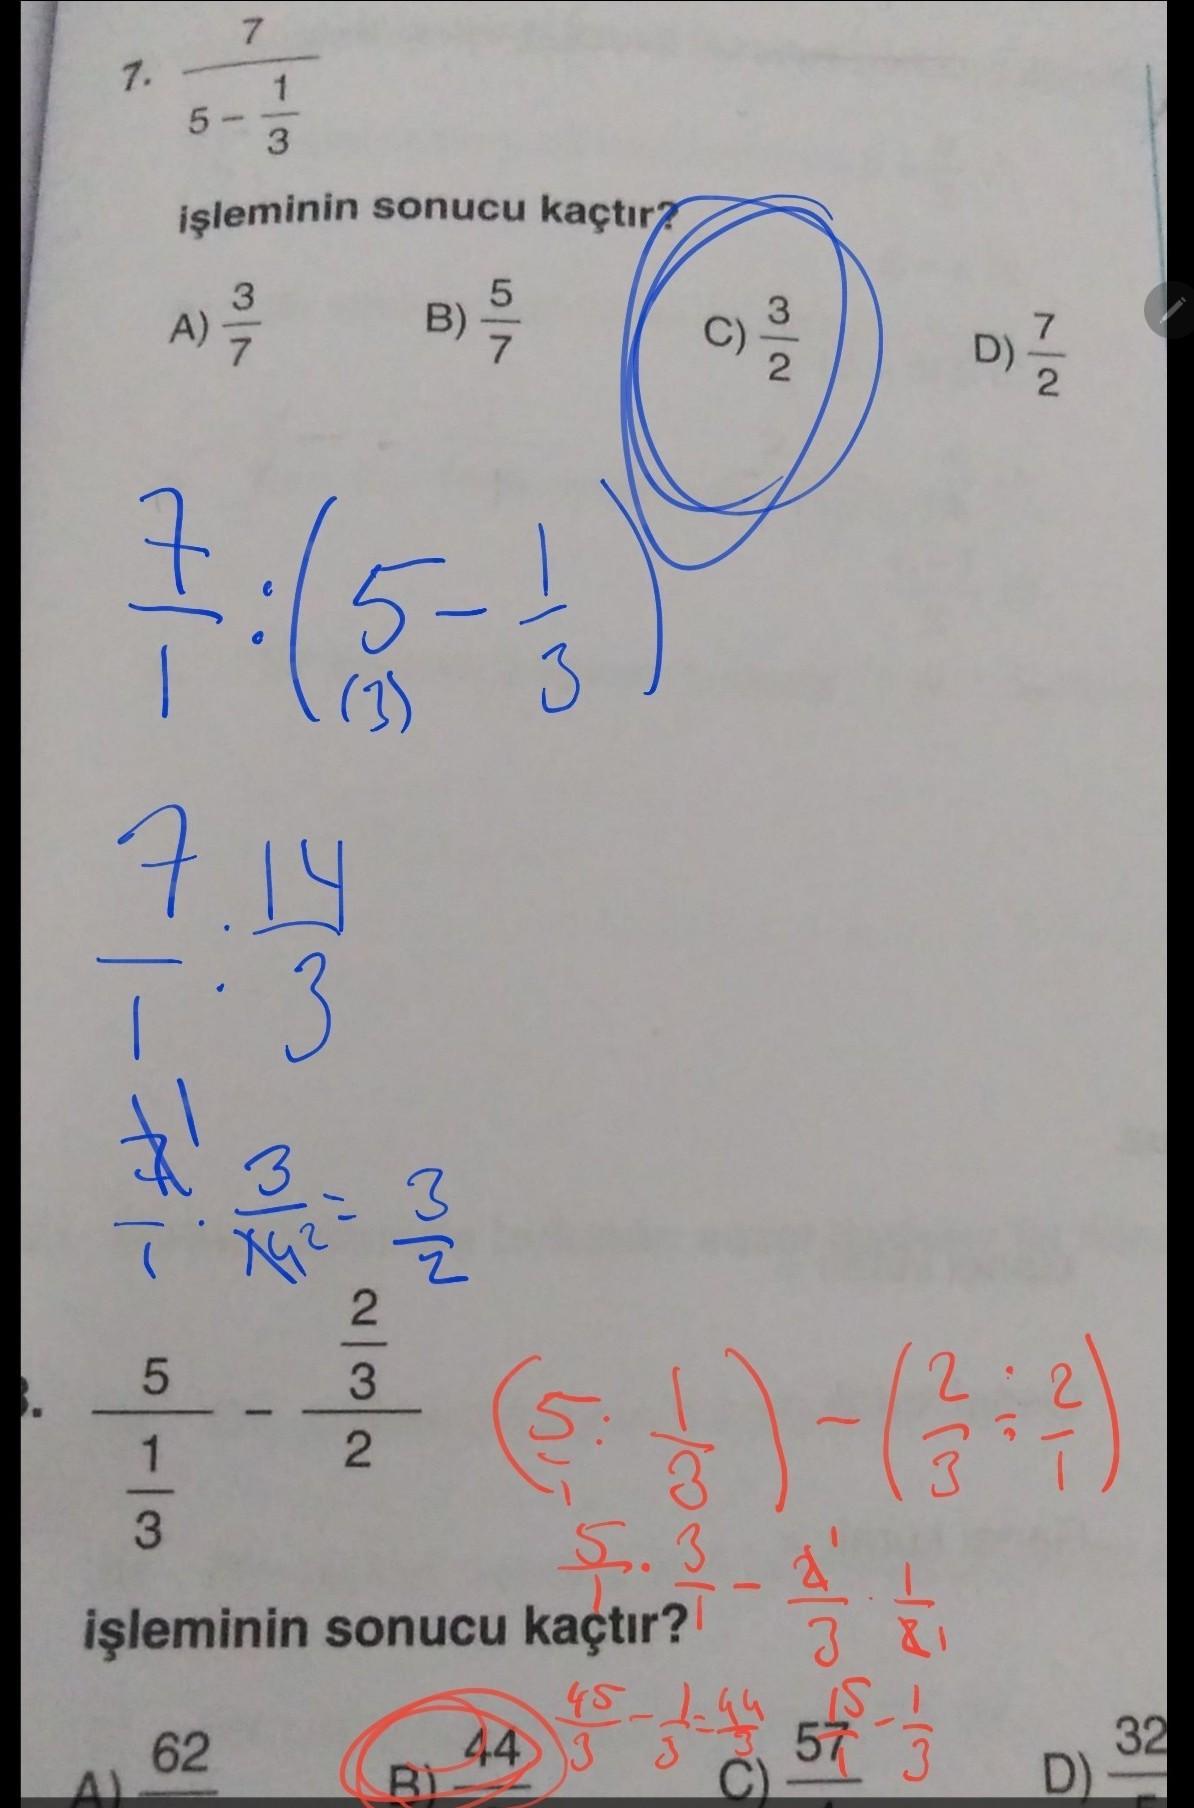 7. 7/(5 - 1/3)
işleminin sonucu kaçtır?
A) 3/7 B) 5/7 C) 3/2 D) 7/2
7/1 : (5 - 1/3)
(3)
7/1 : 14/3
7/1 · 3/14 = 3/2
1 2
5/(1/3) - (2/3)/2
(5/1 : 1/3) - (2/3 ÷ 2/1)
5/1 · 3/1 - 2/3 · 1/2
1 1
işleminin sonucu kaçtır?
45/3 - 1/3 = 44/3 15/1 - 1/3
A) 62 B) 44 C) 57 D) 32